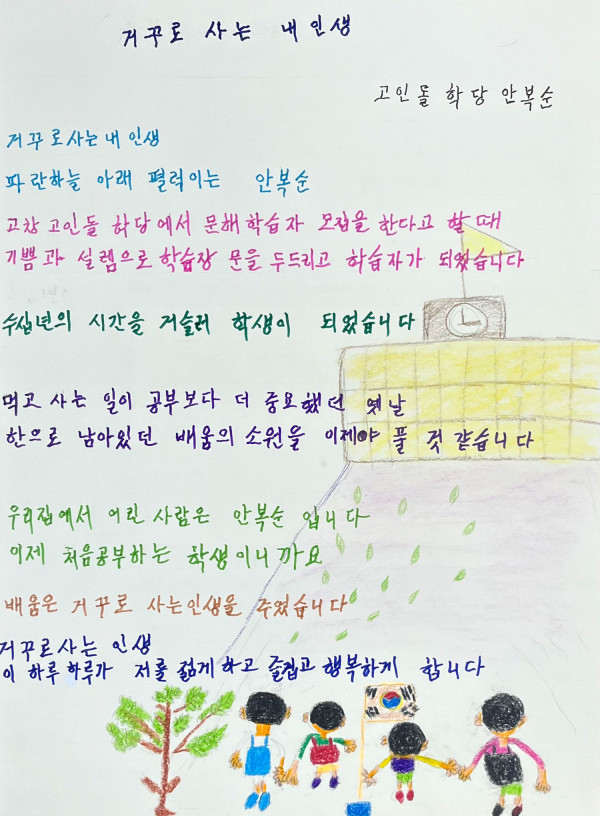 거꾸로 사는 내 인생
고인돌 학당 안복순
거꾸로사는 내 인생
파란하늘 아래 펄럭이는 안복순
고창 고인돌 하당에서 문해학습자 모집을 한다고 할 때
기쁨과 실렘으로 학습장 문을 두드리고 하습자가 되었습니다
수십년의 시간을 거슬러 학생이 되었습니다
먹고 사는 일이 공부보다 더 중요했던 옛날
한으로 남아있던 배움의 소원을 이제야 풀 것 같습니다
우리집에서 어린 사람은 안복순 입니다
이제 처음공부하는 학생이니까요
배움은 거꾸로 사는인생을 주었습니다
거꾸로사는 인생
이 하루 하루가 저를 젊게하고 즐겁고 행복하게 합니다